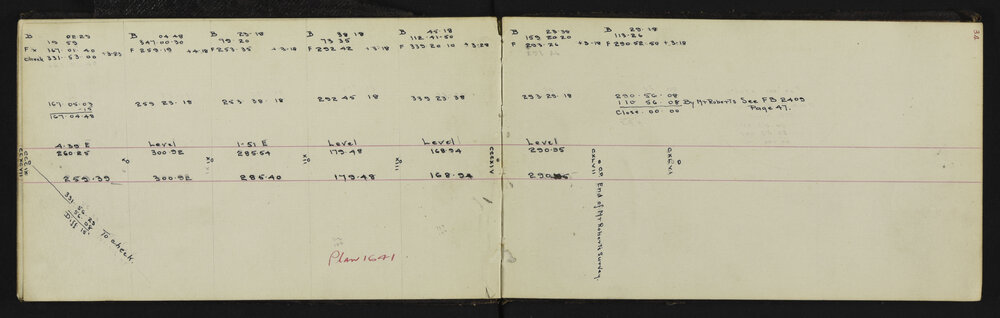 34
B 02·23
19 59
Fix 167·01·40 +3·23
Check 331·53·00
B 04·48
347·00·30
F 259·19 +4·18
B 23·18
79 20
F 253·35 +3·18
B 38 18
73 35
F 292 42 +3·18
B 45·18
112·41·50
F 339 20 10 +3·28
B 23·38
159 20·20
F 293·26 +3·18
B 29·18
113·26
F 290·52·50 +3·18
167·05·03
-15
167·04·48
259 23·18
253 38·18
292 45 18
339 23·38
293·29·18
290·56·08
110 56·08 By Mr Roberts See FB 2409
Page 47.
Close 00 00
4·39 E
260·25
Level
300·92
1·51 E
285·54
Level
179·48
Level
168·94
Level
290·05
259·39
300·92
285·40
179·48
168·94
331·56 23
56 08
Diff 15"
To check.
or End of Mr Roberts Survey.
Plan 1641